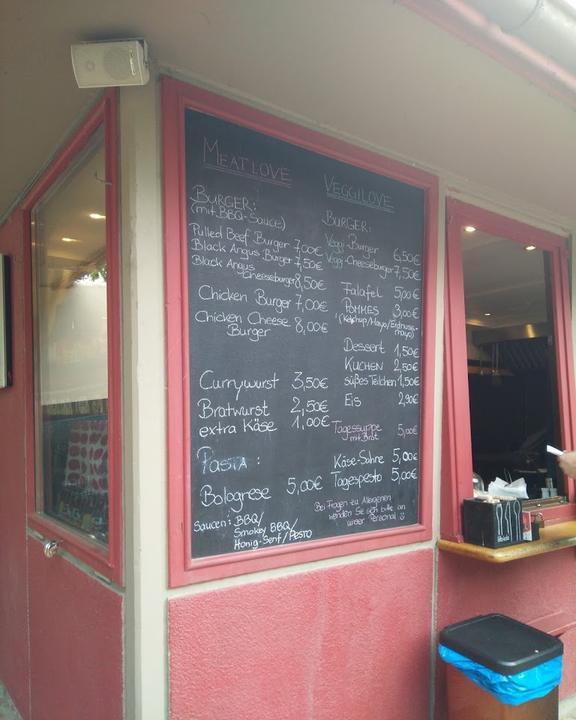 MEATLOVE
BURGER:
(mit BBQ-Sauce)
Pulled Beef Burger 7,00€
Black Angus Burger 7,50€
Black Angus
Cheeseburger 8,50€
Chicken Burger 7,00€
Chicken Cheese 8,00€
Burger
Currywurst 3,50€
Bratwurst 2,50€
extra Käse 1,00€
PASTA:
Bolognese 5,00€
Saucen: BBQ/
Smokey BBQ/
Honig-Senf/Pesto
VEGGILOVE
BURGER:
Veggi-Burger 6,50€
Veggi-Cheeseburger 7,50€
Falafel 5,00€
POMMES 3,00€
(Ketchup/Mayo/Erdnuss-
mayo)
Dessert 1,50€
KUCHEN 2,50€
süßes Teilchen 1,50€
Eis 2,90€
Tagessuppe 5,00€
mit Brot
Käse-Sahne 5,00€
Tagespesto 5,00€
Bei Fragen zu Allergenen
wenden Sie sich bitte an
unser Personal